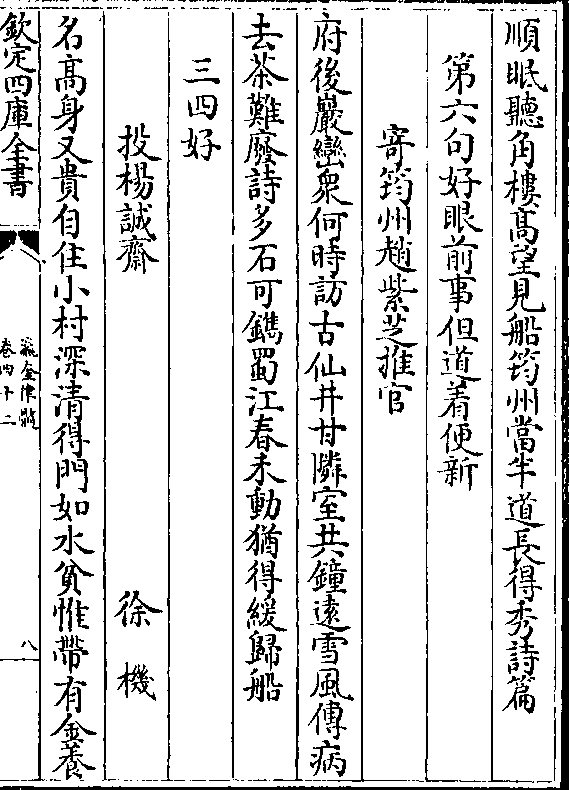 順眠聽角樓高望見船筠州當半道長得秀詩篇
第六句好眼前事但道着便新
寄筠州趙紫芝推官
府後巖巒衆何時訪古仙井甘隣室共鐘遠雪風傳病
去茶難廢詩多石可鐫蜀江春未動猶得緩歸船
三四好
投楊誠齋 徐機
名髙身又貴自住小村深清得門如水貧惟帶有金養
欽定四庫全書
瀛奎律髓
卷四十二
八